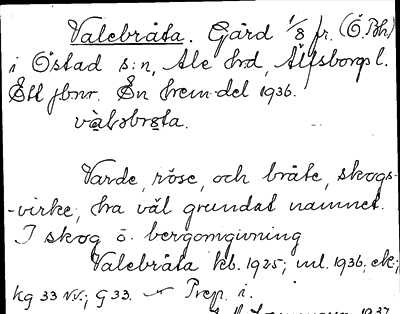 Valebråta. Gård 1/8 fr. (Ö. Bh)
i Östad s:n, Ale hrd, Älfsborgs l.
Ett jbnr. En hem.del 1936.
Varde, röse, och bråte, skogs-
-virke, ha väl grundat namnet.
I skog o. bergomgivning
Valebråta kb. 1925; ml. 1936, ek;
kg 33 NV.; G 33. Prep. i.
1937